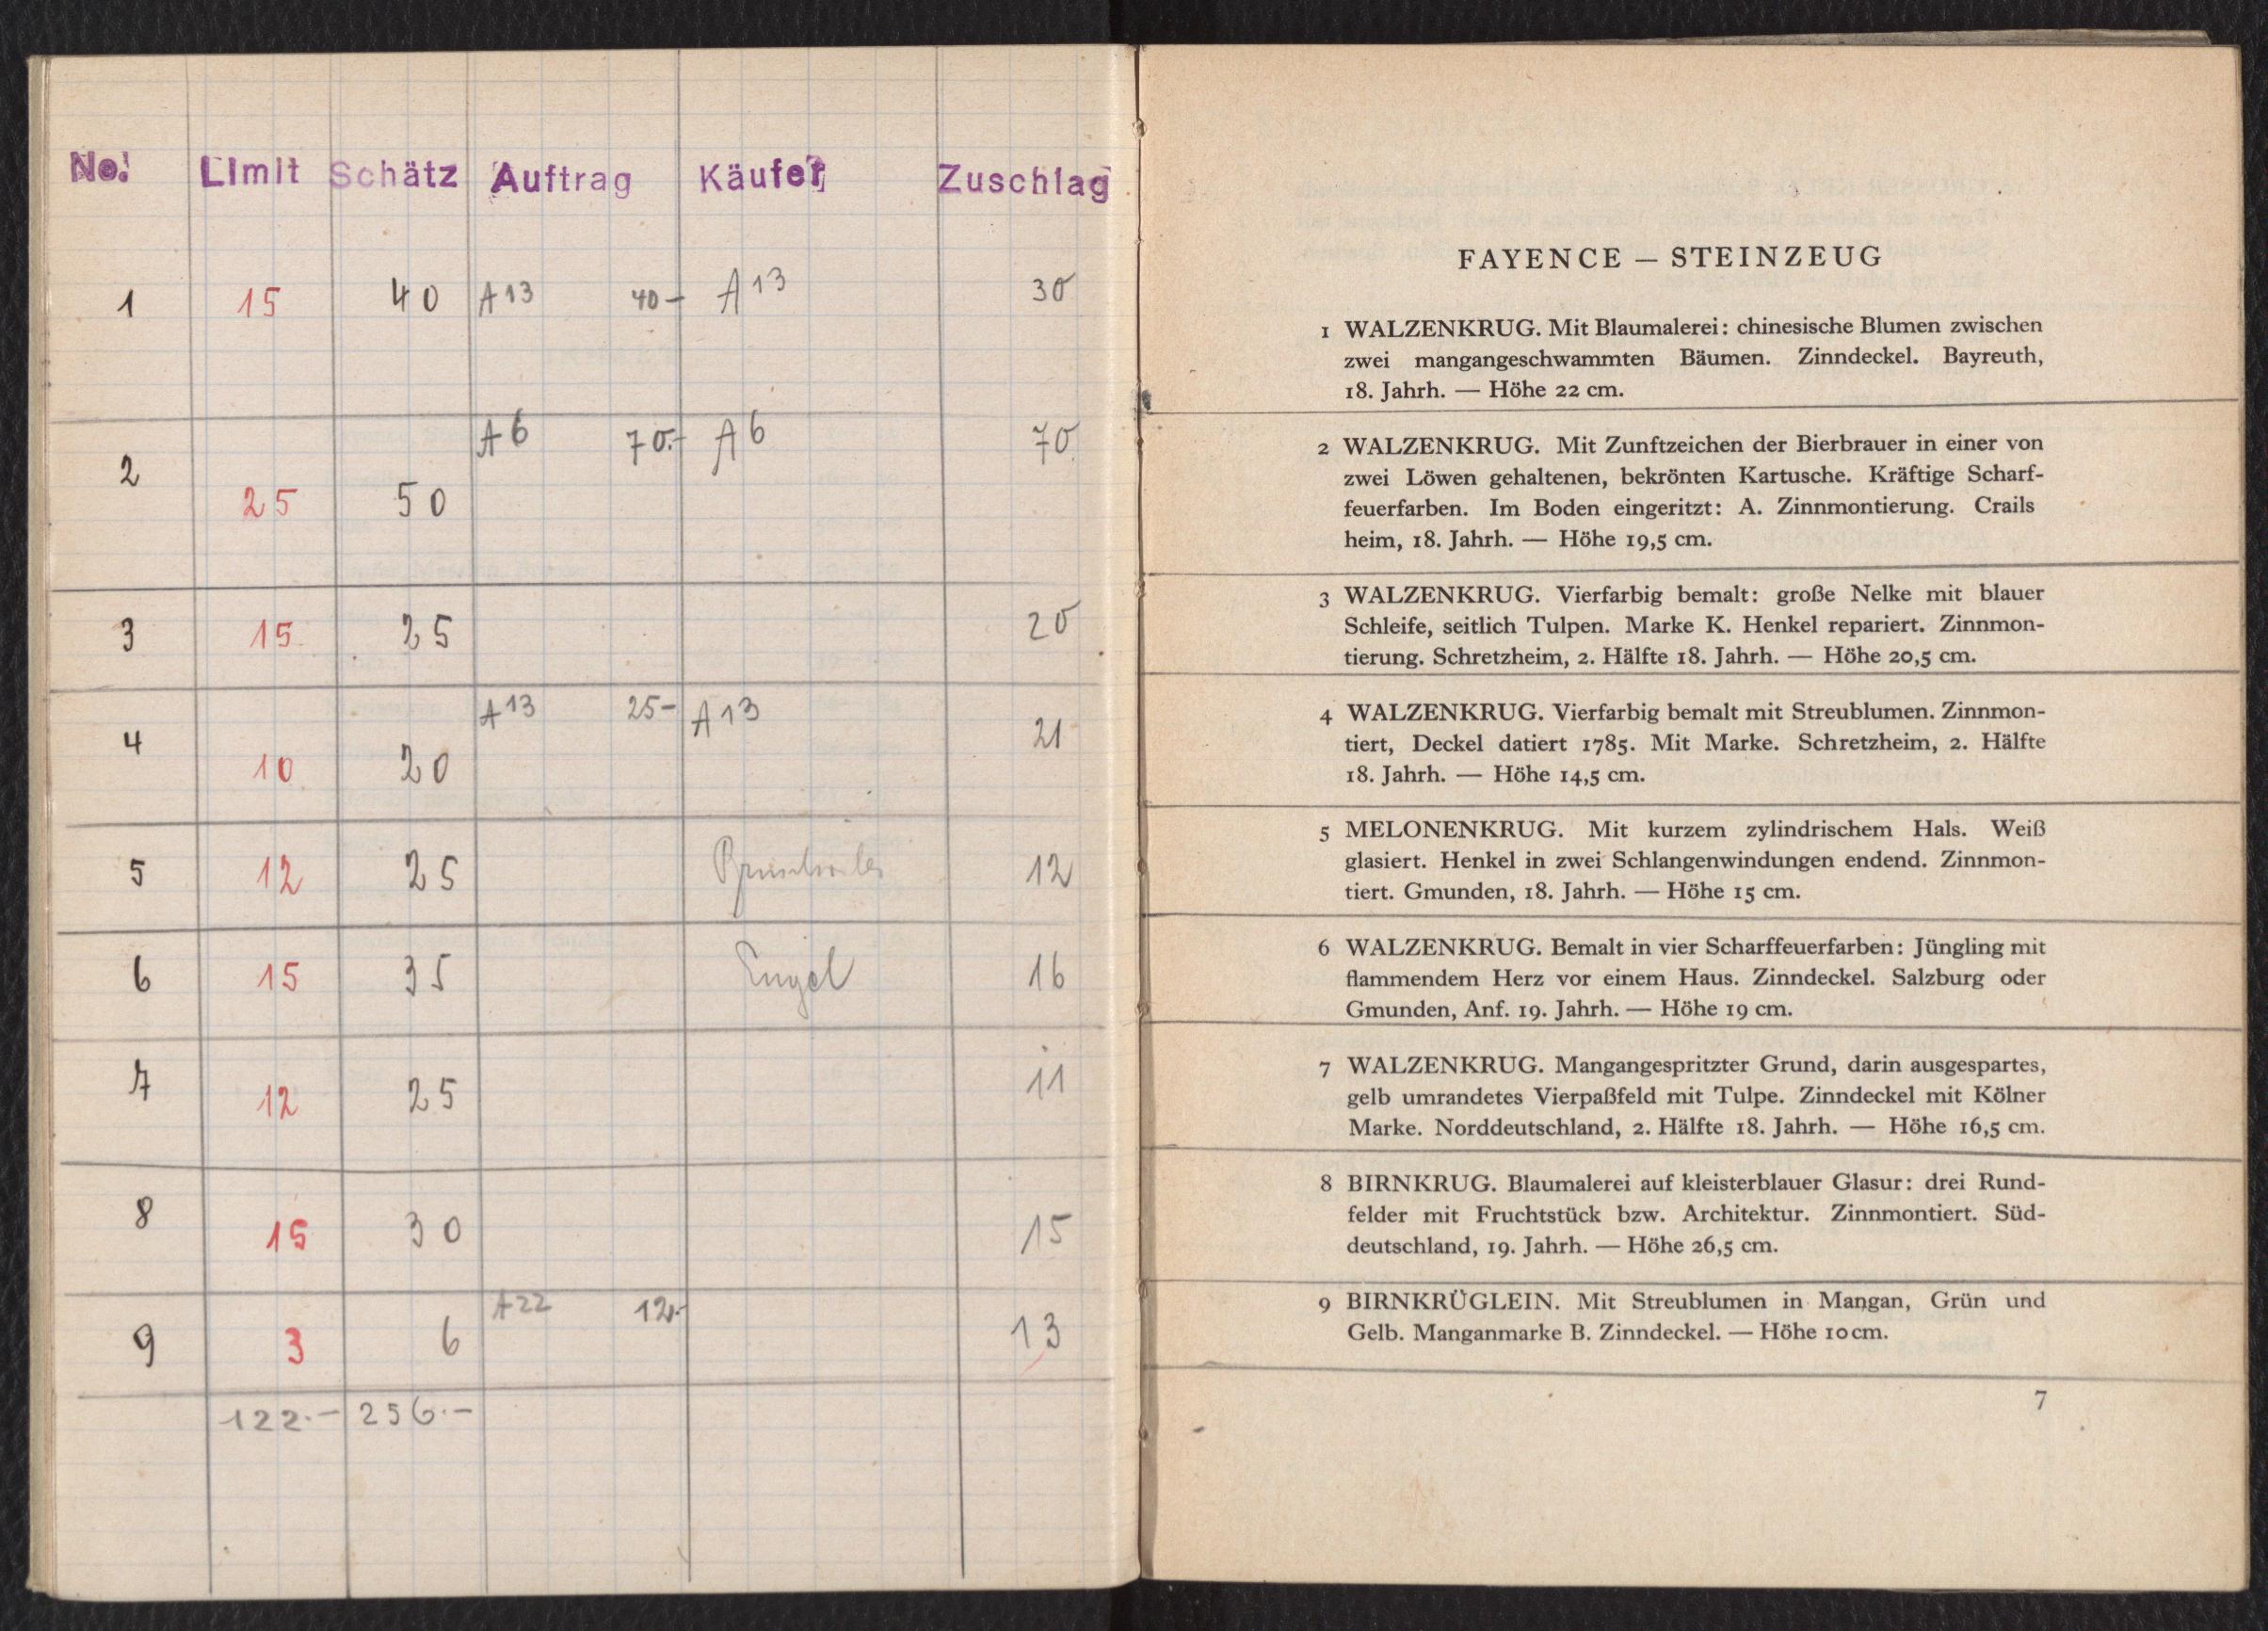 No. Limit Schätz Auftrag Käufer Zuschlag
1 15 40 A13 40- A13 30
2 25 50 A6 70.- A6 70
3 15 25 20
4 10 20 A13 25- A13 21
5 12 25 12
6 15 35 Engel 16
7 12 25 11
8 15 30 15
9 3 6 A22 12.- 13
122.- 256.-
FAYENCE — STEINZEUG
1 WALZENKRUG. Mit Blaumalerei: chinesische Blumen zwischen
zwei mangangeschwammten Bäumen. Zinndeckel. Bayreuth,
18. Jahrh. — Höhe 22 cm.
2 WALZENKRUG. Mit Zunftzeichen der Bierbrauer in einer von
zwei Löwen gehaltenen, bekrönten Kartusche. Kräftige Scharf-
feuerfarben. Im Boden eingeritzt: A. Zinnmontierung. Crails
heim, 18. Jahrh. — Höhe 19,5 cm.
3 WALZENKRUG. Vierfarbig bemalt: große Nelke mit blauer
Schleife, seitlich Tulpen. Marke K. Henkel repariert. Zinnmon-
tierung. Schretzheim, 2. Hälfte 18. Jahrh. — Höhe 20,5 cm.
4 WALZENKRUG. Vierfarbig bemalt mit Streublumen. Zinnmon-
tiert, Deckel datiert 1785. Mit Marke. Schretzheim, 2. Hälfte
18. Jahrh. — Höhe 14,5 cm.
5 MELONENKRUG. Mit kurzem zylindrischem Hals. Weiß
glasiert. Henkel in zwei Schlangenwindungen endend. Zinnmon-
tiert. Gmunden, 18. Jahrh. — Höhe 15 cm.
6 WALZENKRUG. Bemalt in vier Scharffeuerfarben: Jüngling mit
flammendem Herz vor einem Haus. Zinndeckel. Salzburg oder
Gmunden, Anf. 19. Jahrh. — Höhe 19 cm.
7 WALZENKRUG. Mangangespritzter Grund, darin ausgespartes,
gelb umrandetes Vierpaßfeld mit Tulpe. Zinndeckel mit Kölner
Marke. Norddeutschland, 2. Hälfte 18. Jahrh. — Höhe 16,5 cm.
8 BIRNKRUG. Blaumalerei auf kleisterblauer Glasur: drei Rund-
felder mit Fruchtstück bzw. Architektur. Zinnmontiert. Süd-
deutschland, 19. Jahrh. — Höhe 26,5 cm.
9 BIRNKRÜGLEIN. Mit Streublumen in Mangan, Grün und
Gelb. Manganmarke B. Zinndeckel. — Höhe 10cm.
7